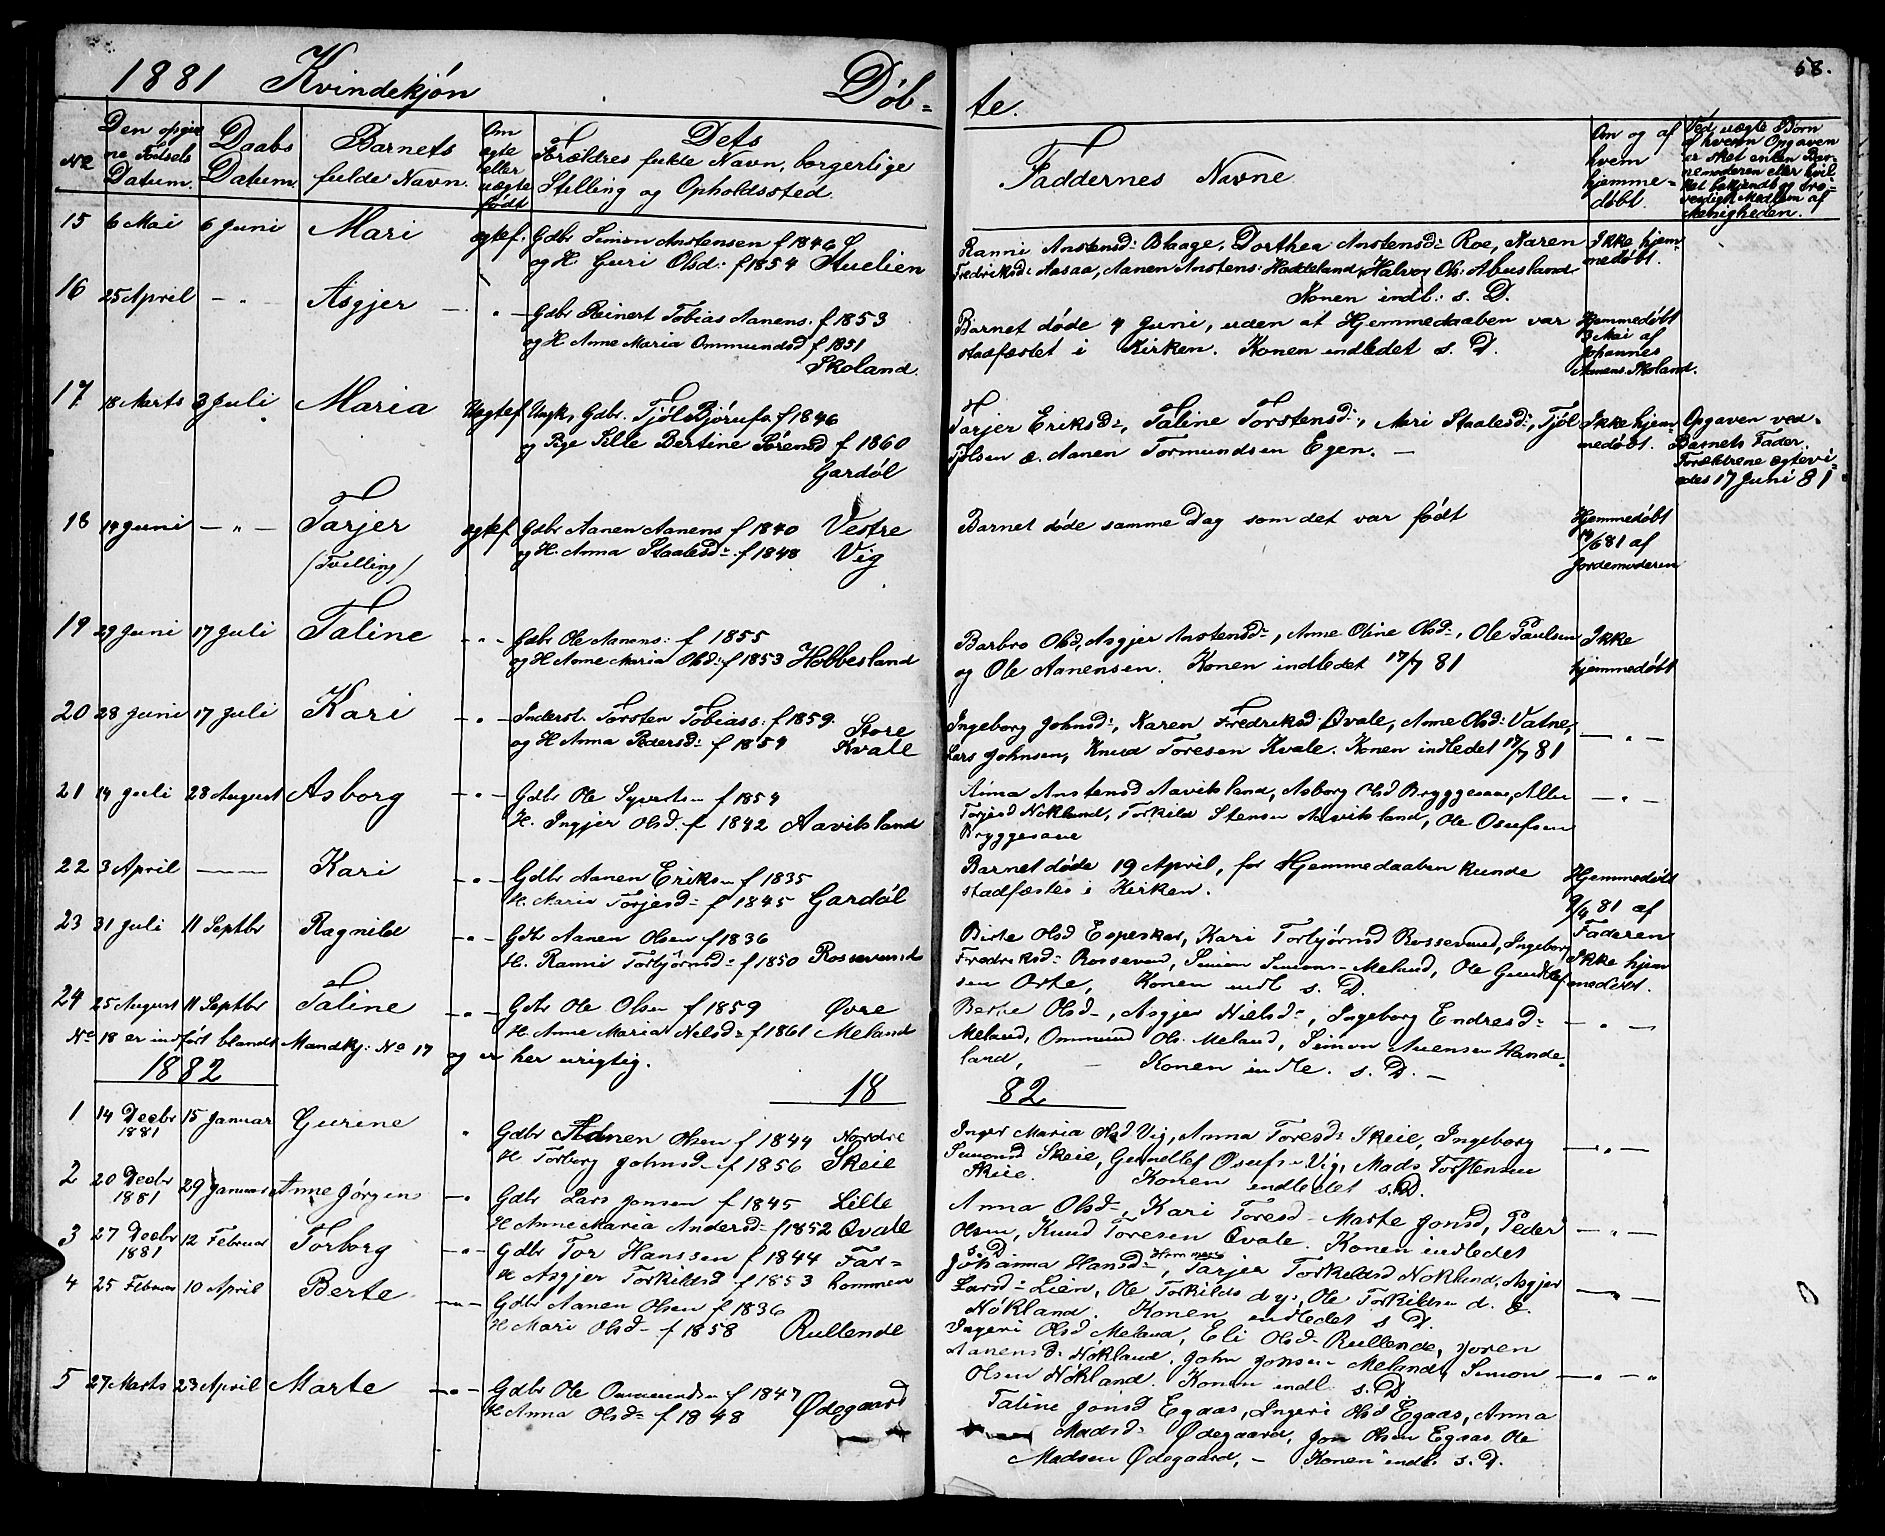 1881 Kvindekjøn Døb-
te.
58.
No
Den opgiv
ne Fødsels
Datum.
Daabs
Datum
Barnets
fulde Navn.
Om
ægte
eller
uægte
født
Dets
Forældres fulde Navn, borgerlige
Stilling og Opholdssted.
Faddernes Navne
Om og af
hvem
hjemme-
døbt.
Ved uægte Børn
af hvem Opgaven
er sket enten Bar-
nemoderen eller hvil
ket bekjendt og tro-
værdigt Medlem af
Menigheden.
15 6 Mai 6 Juni Mari ægtef. Gdbr Simon Anstensen f 1846
og H. Guri Olsd: f 1854 Stuelien
Ranni Anstensd: Blaage, Dorthea Anstensd: Roe, Karen
Fredriksd: Aasaa, Aanen Anstens: Haddeland, Halvog Ols: Abusland
Konen indl: s. D.
Ikke hjem
medøbt.
16 25 April - " - Asgjer - " - Gdbr Reinert Tobias Aanens. f 1853
og H Anne Maria Ommundsd f 1851
Skoland.
Barnet døde 4 Juni, uden at Hjemmedaaben var
stadfæstet i Kirken. Konen indledet s. D.
Hjemmedøbt
3 Mai af
Johannes
Aanens. Skoland.
17 18 Marts 3 Juli Maria Uægtef Ungk, Gdbr. Tjøl Bjørufs. f 1846
og Pige Sille Bertine Sørensd f 1860
Gardøl
Tarjer Eriksd:, Taline Torstensd:, Mari Staalesd:, Tjøl
Tjølsen æ. Aanen Tormundsen Egen. -
Ikke hjem-
medøbt.
Opgaven ved-
Barnets Fader.
Forældrene ægtevi-
edes 17 Juni 81
18 14 Juni - " - Tarjer ægtef Gdbr Aanen Aanens f 1840 Vestre
(Tvilling) og H. Anna Staalesd: f 1848 Vig
Barnet døde samme Dag som det var født
Hjemmedøbt
14/6 81 af
Jordemoderen
19 29 Juni 17 Juli Taline - " - Gdbr Ole Aanens: f 1855
og H Anne Maria Olsd: f 1853 Hobbesland
Barbro Olsd, Asgjer Anstensd:, Anne Oline Olsd:, Ole Paulsen
og Ole Aanensen. Konen indledet 17/7 81
Ikke
hjemmedøbt
20 28 Juni 17 Juli Kari - " - Inderst. Torsten Tobiass: f 1859. Store
og H Anna Pedersd: f 1859 Kvale
Ingeborg Johnsd:, Karen Fredriksd: Qvale, Anne Olsd: Vatne,
Lars Johnsen, Knud Toresen Kvale. Konen indledet 17/7 81
- " -
21 14 Juli 28 August Asborg - " - Gdbr Ole Syverts f 1854
H. Ingjer Olsd: f 1842 Aavitsland
Anna Anstensd Aavitsland, Asborg Olsd Bryggesaae,
Torjesd Nokland, Torkild Stensen Aavitsland, Ole Osufsen
Bryggesaae
- " -
22 3 April - Kari - " - Gdbr Aanen Eriksen f 1835
H. Maria Torjesd: f 1845 Gardøl
Barnet døde 19 April, før Hjemmedaaben kunde
stadfæstes i Kirken.
Hjemmedøbt
9/4 81 af
Faderen
23 31 Juli 11 Septbr Ragnild - " - Gdbr Aanen Olsen f 1836
H. Ranni Torbjørnsd: f 1850 Rossevand
Birte Olsd Espeskar, Kari Torbjørnsd Rossevand, Ingeborg
Fredriksd: Rossevand, Simon Simons- Meland, Ole Gundlef
sen Orte, Konen indl s. D.
Ikke hjem
medøbt.
24 25 August 11 Septbr Taline - " - Gdbr Ole Olsen f 1859 Øvre
H. Anne Maria Nelsd: f 1861 Meland
Berte Olsd-, Asgjer Nielsd:, Ingeborg Endresd:
Meland, Ommund Ols. Meland, Simon Auensen Hande-
land, - Konen indle. s. D. -
- " -
No 18 er indført blandt Mandkj: No 17 og er her urigtig.
1882
18 82
1 14 Decbr 15 Januar Gurine " Gdbr Aanen Olsen f 1844 Nordre
1881 H Torborg Johnsd- f 1856 Skeie
Inger Maria Olsd Vig, Anna Toresd: Skeie, Ingeborg
Simonsd Skeie, Gundlef Osufs- Vig, Mads Torstensen
Skeie. Konen indledet s. D.
- " -
2 20 Decbr 29 Januar Anne Jørgine - " Gdbr Lars Jonsen f 1845 Lille
1881 H Anne Maria Andersd- f 1852 Qvale
Anna Olsd-, Kari Toresd- Marte Jonsd, Peder
Olsen, Knud Toresen Qvale. Konen indledet
s. D.
- " -
3 27 Decbr 12 Februar Torborg - " - Gdbr Tor Hanssen f 1844 Far-
1881 H Asgjer Torkildsd f 1853 kommen
Johanna Hansd-, Tarjer Torkildsd Nokland, Asgjer
Larsd- Lien, Ole Torkilds d. y:, Ole Torkildsen d. æ.
Nökland. Konen indledet s D.
- " -
4 25 Februar 10 April Berte - " - Gdbr Aanen Olsen f 1836
H Mari Olsd- f 1858 Rullende
Ingeri Olsd Meland, Eli Olsd- Rullende, Joren
Aanensd: Nokland. John Jonsen Meland, Simon
Olsen Nökland. Konen indl s. D.
- " - "
5 27 Marts 23 April Marte - " - Gdbr Ole Ommunds f 1847
H Anna Olsd: f 1848 Ødegaard
Taline Jonsd Egaas, Ingeri Olsd Egaas, Anna
Madsd: Ødegaard, Jon Olsen Egaas Ole
Madsen Ødegaard, - Konen indl. s. D.